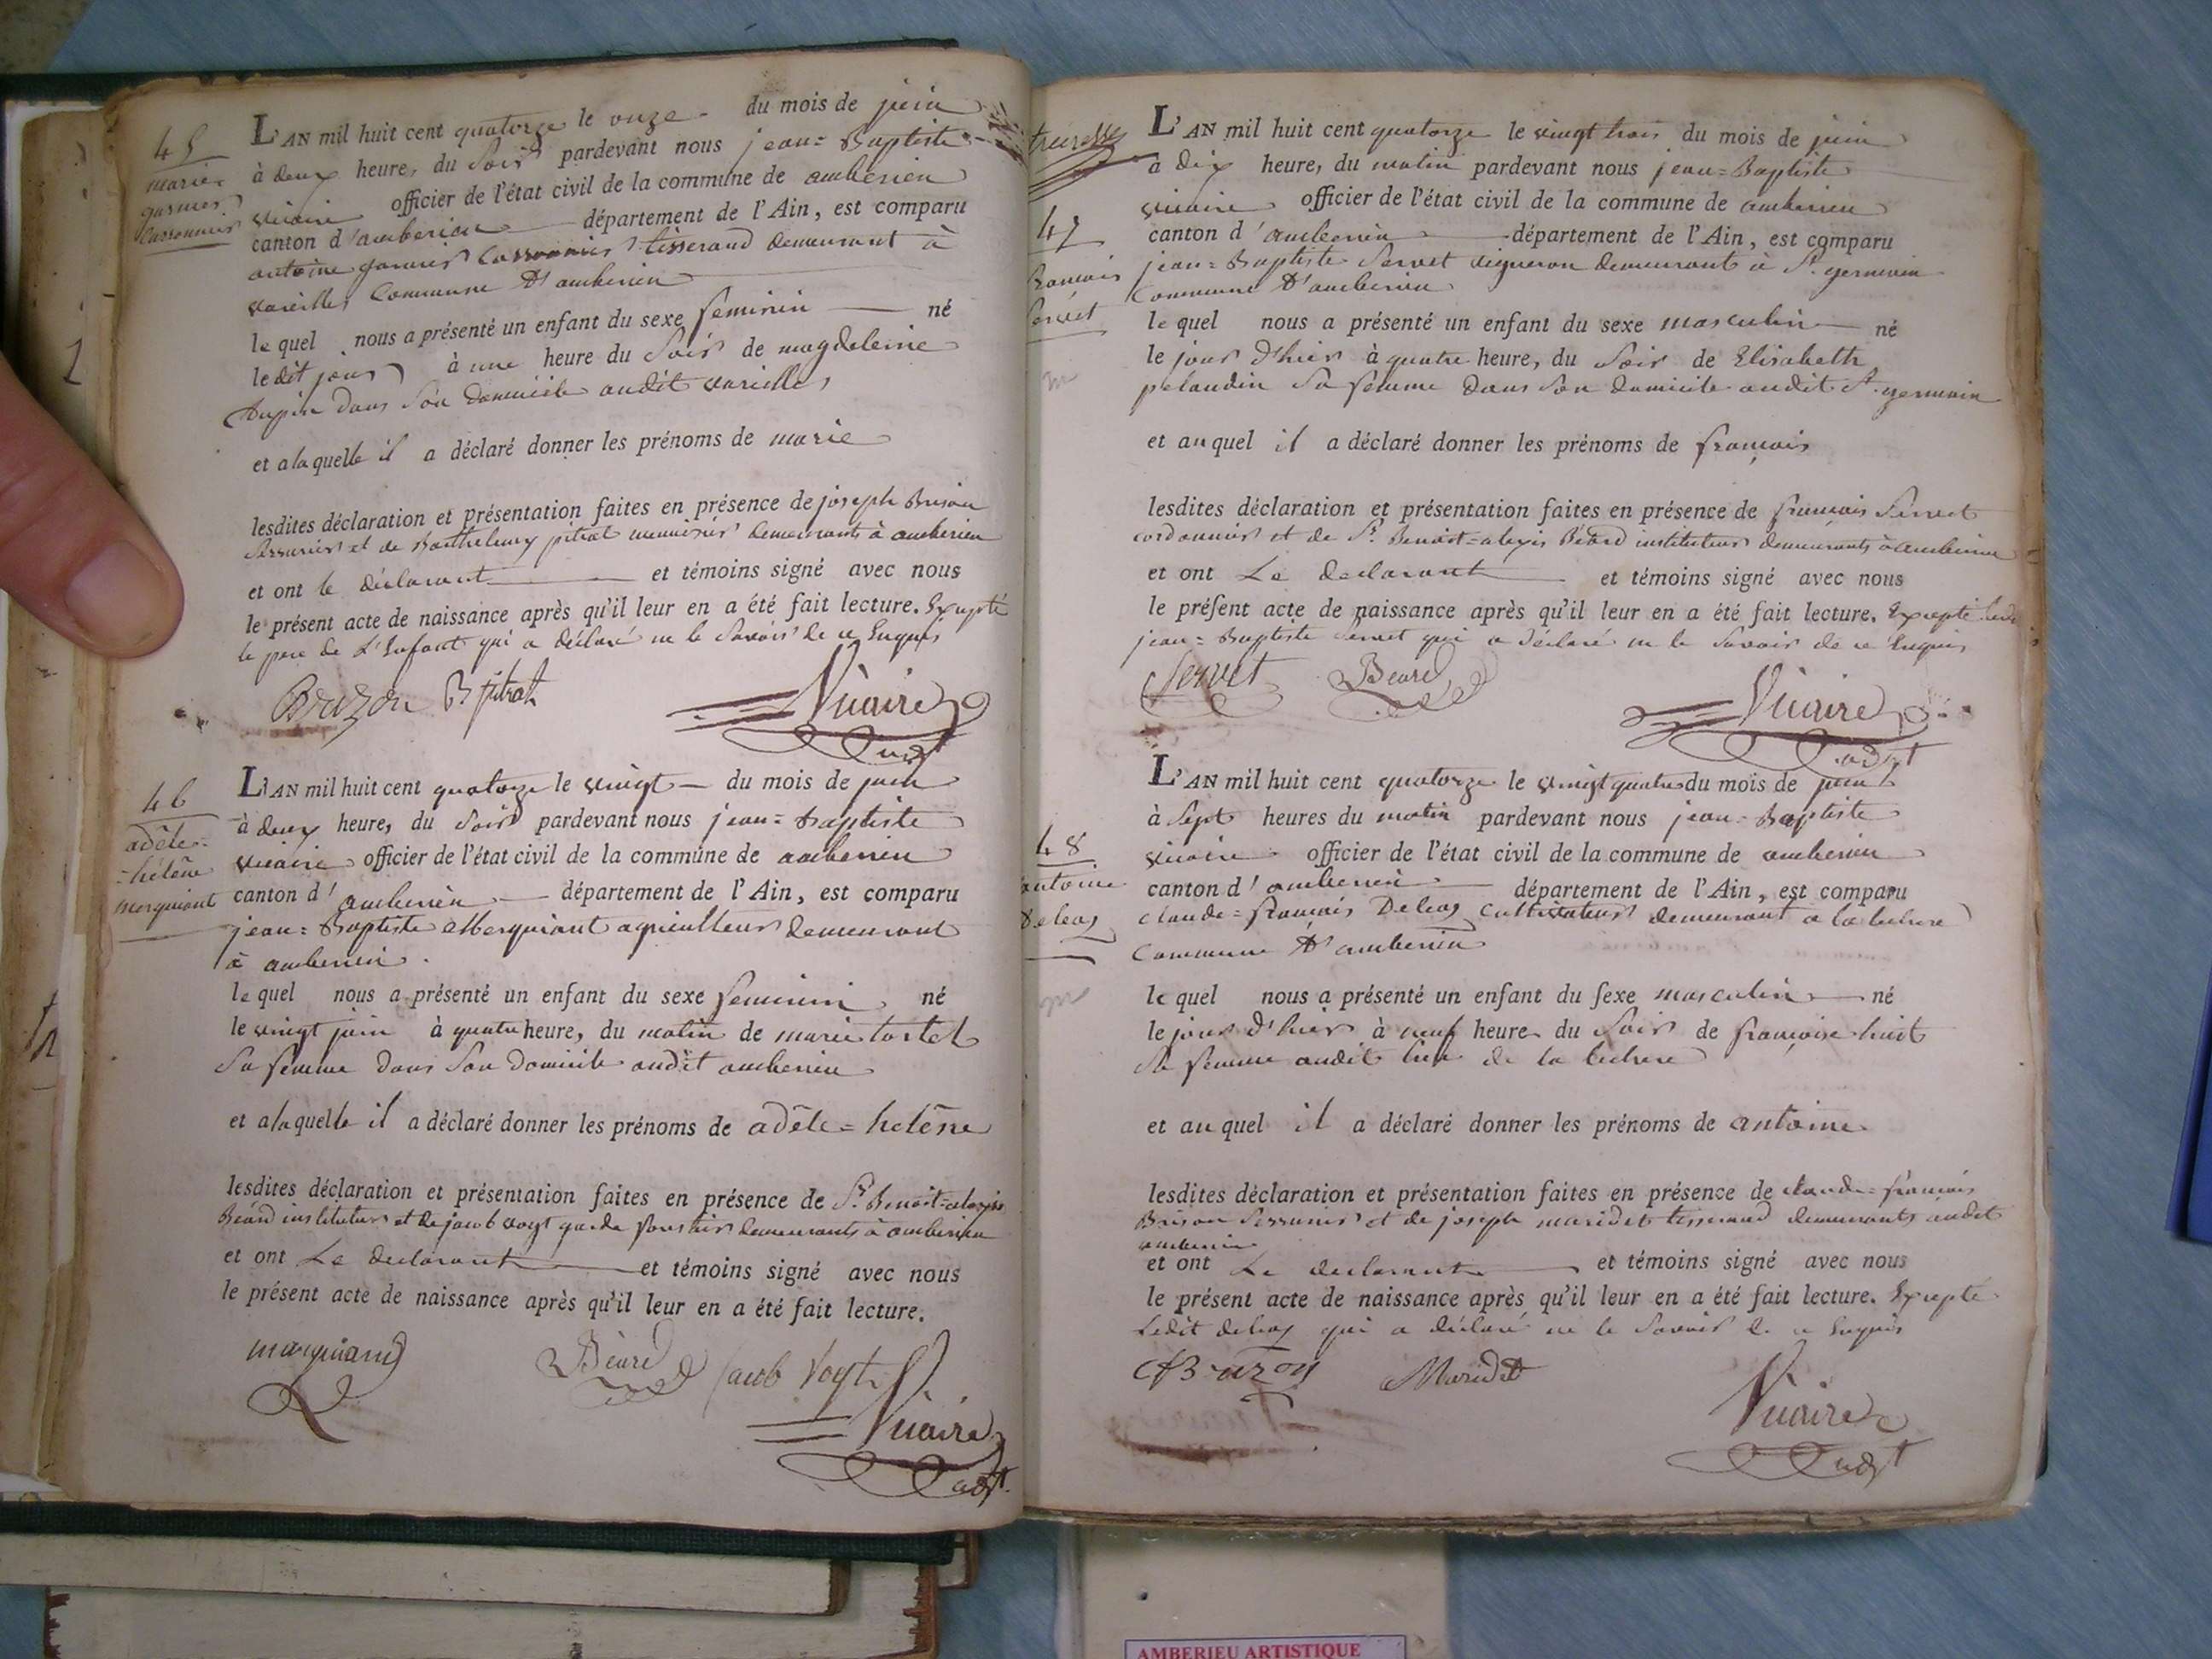 45
marie
garnier
L'AN mil huit cent quatorze le onze du mois de juin
à deux heure, du Soir pardevant nous jean=Baptiste
vicaire officier de l'état civil de la commune de amberieu
canton d'amberieu département de l'Ain, est comparu
antoine garnier tisserand demeurant à
vareilles Commune d'amberieu
le quel nous a présenté un enfant du sexe feminin né
ledit jour à une heure du Soir de magdeleine
dupin dans Son domicile audit vareilles
et a laquelle il a déclaré donner les prénoms de marie
lesdites déclaration et présentation faites en présence de joseph Brison
Serrurier et de Barthelemy pitrat menuisier demeurants à amberieu
et ont le déclarant et témoins signé avec nous
le présent acte de naissance après qu'il leur en a été fait lecture. Excepté
le pere de L'Enfant qui a déclaré ne le Savoir de ce Enquis
Brizon B pitrat Vicaire
adjt
46
adèle=
=hélène
merquiant
L'AN mil huit cent quatorze le vingt du mois de juin
à deux heure, du Soir pardevant nous jean=baptiste
vicaire officier de l'état civil de la commune de amberieu
canton d'amberieu département de l'Ain, est comparu
jean=Baptiste Merquiant agriculteur demeurant
à amberieu.
le quel nous a présenté un enfant du sexe feminin né
le vingt juin à quatre heure, du matin de marie tortel
Sa femme dans Son domicile audit amberieu
et a laquelle il a déclaré donner les prénoms de adèle=helène
lesdites déclaration et présentation faites en présence de Sr. Benoit=alexis
Béard instituteur et de jacob vogt garde forestier demeurants à amberieu
et ont Le declarant et témoins signé avec nous
le présent acte de naissance après qu'il leur en a été fait lecture.
marquiand Béard jacob Vogt Vicaire
adjt.
47
francois
Servet
L'AN mil huit cent quatorze le vingt trois du mois de juin
à dix heure, du matin pardevant nous jean=Baptiste
vicaire officier de l'état civil de la commune de amberieu
canton d'amberieu département de l'Ain, est comparu
jean=Baptiste Servet vigneron demeurant à St. germain
Commune d'amberieu
le quel nous a présenté un enfant du sexe masculin né
le jour d'hier à quatre heure, du Soir de Elisabeth
pelaudin Sa femme dans Son domicile audit St. germain
et auquel il a déclaré donner les prénoms de françois
lesdites déclaration et présentation faites en présence de françois Servet
cordonnier et de Sr. Benoit=alexis Béard instituteur demeurants à amberieu
et ont Le declarant et témoins signé avec nous
le présent acte de naissance après qu'il leur en a été fait lecture. Excepté ledit
jean=Baptiste Servet qui a déclaré ne le Savoir de ce Enquis
Servet Béard Vicaire
adjt
48
antoine
Deleas
L'AN mil huit cent quatorze le vingt quatre du mois de juin
à Sept heures du matin pardevant nous jean=Baptiste
vicaire officier de l'état civil de la commune de amberieu
canton d'amberieu département de l'Ain, est comparu
claude=francois Deleas Cultivateur demeurant a la
Commune d'amberieu
le quel nous a présenté un enfant du sexe masculin né
le jour d'hier à neuf heure du Soir de françoise huit
Sa femme audit lieu de la
et auquel il a déclaré donner les prénoms de antoine
lesdites déclaration et présentation faites en présence de claude=francois
Brison Serrurier et de joseph maridet tisserand demeurants audit
amberieu
et ont Le declarant et témoins signé avec nous
le présent acte de naissance après qu'il leur en a été fait lecture. Excepté
Ledit deleas qui a déclaré ne le Savoir de ce Enquis
Brizon Maridet Vicaire
adjt
AMBERIEU ARTISTIQUE